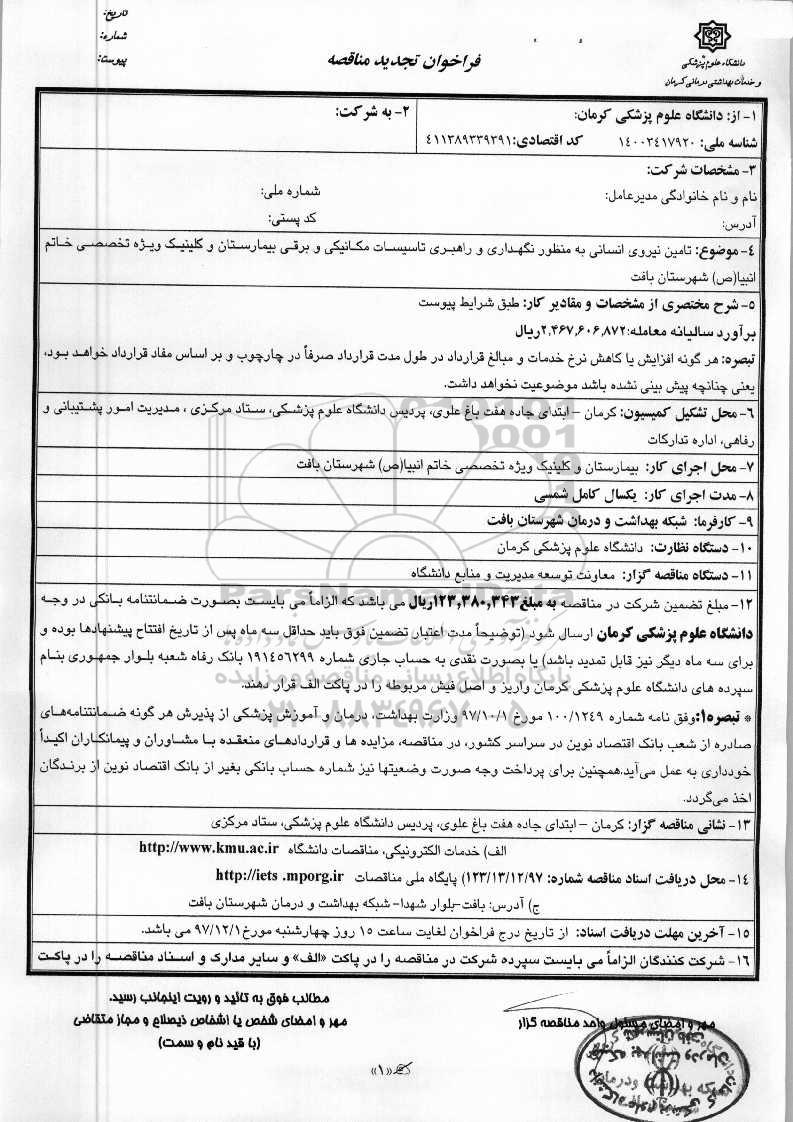 تاریخ:
شماره:
پیوست:
دانشگاه علوم پزشکی
و خدمات بهداشتی درمانی کرمان
فراخوان تجدید مناقصه
۱- از: دانشگاه علوم پزشکی کرمان:
شناسه ملی: ۱۴۰۰۳۴۱۷۹۲۰ کد اقتصادی:۴۱۱۳۸۹۳۳۹۳۹۱
۲- به شرکت:
۳- مشخصات شرکت:
نام و نام خانوادگی مدیرعامل: شماره ملی:
آدرس: کد پستی:
۴-موضوع: تامین نیروی انسانی به منظور نگهداری و راهبری تاسیسات مکانیکی و برقی بیمارستان و کلینیک ویژه تخصصی خاتم
انبیا(ص) شهرستان بافت
۵- شرح مختصری از مشخصات و مقادیر کار: طبق شرایط پیوست
برآورد سالیانه معامله:۲,۴۶۷,۶۰۶,۸۷۲ریال
تبصره: هر گونه افزایش یا کاهش نرخ خدمات و مبالغ قرارداد در طول مدت قرارداد صرفاً در چارچوب و بر اساس مفاد قرارداد خواهد بود،
یعنی چنانچه پیش بینی نشده باشد موضوعیت نخواهد داشت.
۶- محل تشکیل کمیسیون: کرمان – ابتدای جاده هفت باغ علوی، پردیس دانشگاه علوم پزشکی، ستاد مرکزی ، مدیریت امور پشتیبانی و
رفاهی، اداره تدارکات
۷- محل اجرای کار: بیمارستان و کلینیک ویژه تخصصی خاتم انبیا(ص) شهرستان بافت
۸- مدت اجرای کار: یکسال کامل شمسی
۹- کارفرما: شبکه بهداشت و درمان شهرستان بافت
۱۰- دستگاه نظارت: دانشگاه علوم پزشکی کرمان
۱۱- دستگاه مناقصه گزار: معاونت توسعه مدیریت و منابع دانشگاه
۱۲- مبلغ تضمین شرکت در مناقصه به مبلغ۱۲۳,۳۸۰,۳۴۳ریال می باشد که الزاماً می بایست بصورت ضمانتنامه بانکی در وجه
دانشگاه علوم پزشکی کرمان ارسال شود.(توضیحاً مدت اعتبار تضمین فوق باید حداقل سه ماه پس از تاریخ افتتاح پیشنهادها بوده و
برای سه ماه دیگر نیز قابل تمدید باشد) یا بصورت نقدی به حساب جاری شماره ۱۹۱۴۵۶۲۹۹ بانک رفاه شعبه بلوار جمهوری بنام
سپرده های دانشگاه علوم پزشکی کرمان واریز و اصل فیش مربوطه را در پاکت الف قرار دهند.
* تبصره۱:وفق نامه شماره ۱۰۰/۱۲۴۹ مورخ ۹۷/۱۰/۱ وزارت بهداشت، درمان و آموزش پزشکی از پذیرش هر گونه ضمانتنامه‌های
صادره از شعب بانک اقتصاد نوین در سراسر کشور، در مناقصه، مزایده ها و قراردادهای منعقده با مشاوران و پیمانکاران اکیداً
خودداری به عمل می‌آید.همچنین برای پرداخت وجه صورت وضعیتها نیز شماره حساب بانکی بغیر از بانک اقتصاد نوین از برندگان
اخذ می‌گردد.
۱۳- نشانی مناقصه گزار: کرمان – ابتدای جاده هفت باغ علوی، پردیس دانشگاه علوم پزشکی، ستاد مرکزی
الف) خدمات الکترونیکی، مناقصات دانشگاه http://www.kmu.ac.ir
۱۴- محل دریافت اسناد مناقصه شماره: ۱۲۳/۱۳/۱۲/۹۷) پایگاه ملی مناقصات http://iets .mporg.ir
ج) آدرس: بافت-بلوار شهدا- شبکه بهداشت و درمان شهرستان بافت
۱۵- آخرین مهلت دریافت اسناد: از تاریخ درج فراخوان لغایت ساعت ۱۵ روز چهارشنبه مورخ۹۷/۱۲/۱ می باشد.
۱۶- شرکت کنندگان الزاماً می بایست سپرده شرکت در مناقصه را در پاکت «الف» و سایر مدارک و اسناد مناقصه را در پاکت
مطالب فوق به تائید و رویت اینجانب رسید.
مهر و امضای مسئول واحد مناقصه گزار
مهر و امضای شخص یا اشخاص ذیصلاح و مجاز متقاضی
(با قید نام و سمت)
«۱»
ParsNamadData
پایگاه اطلاع رسانی مناقصه و مزایده
۰۲۱-۸۸۳۴۹۶۷۰-۵